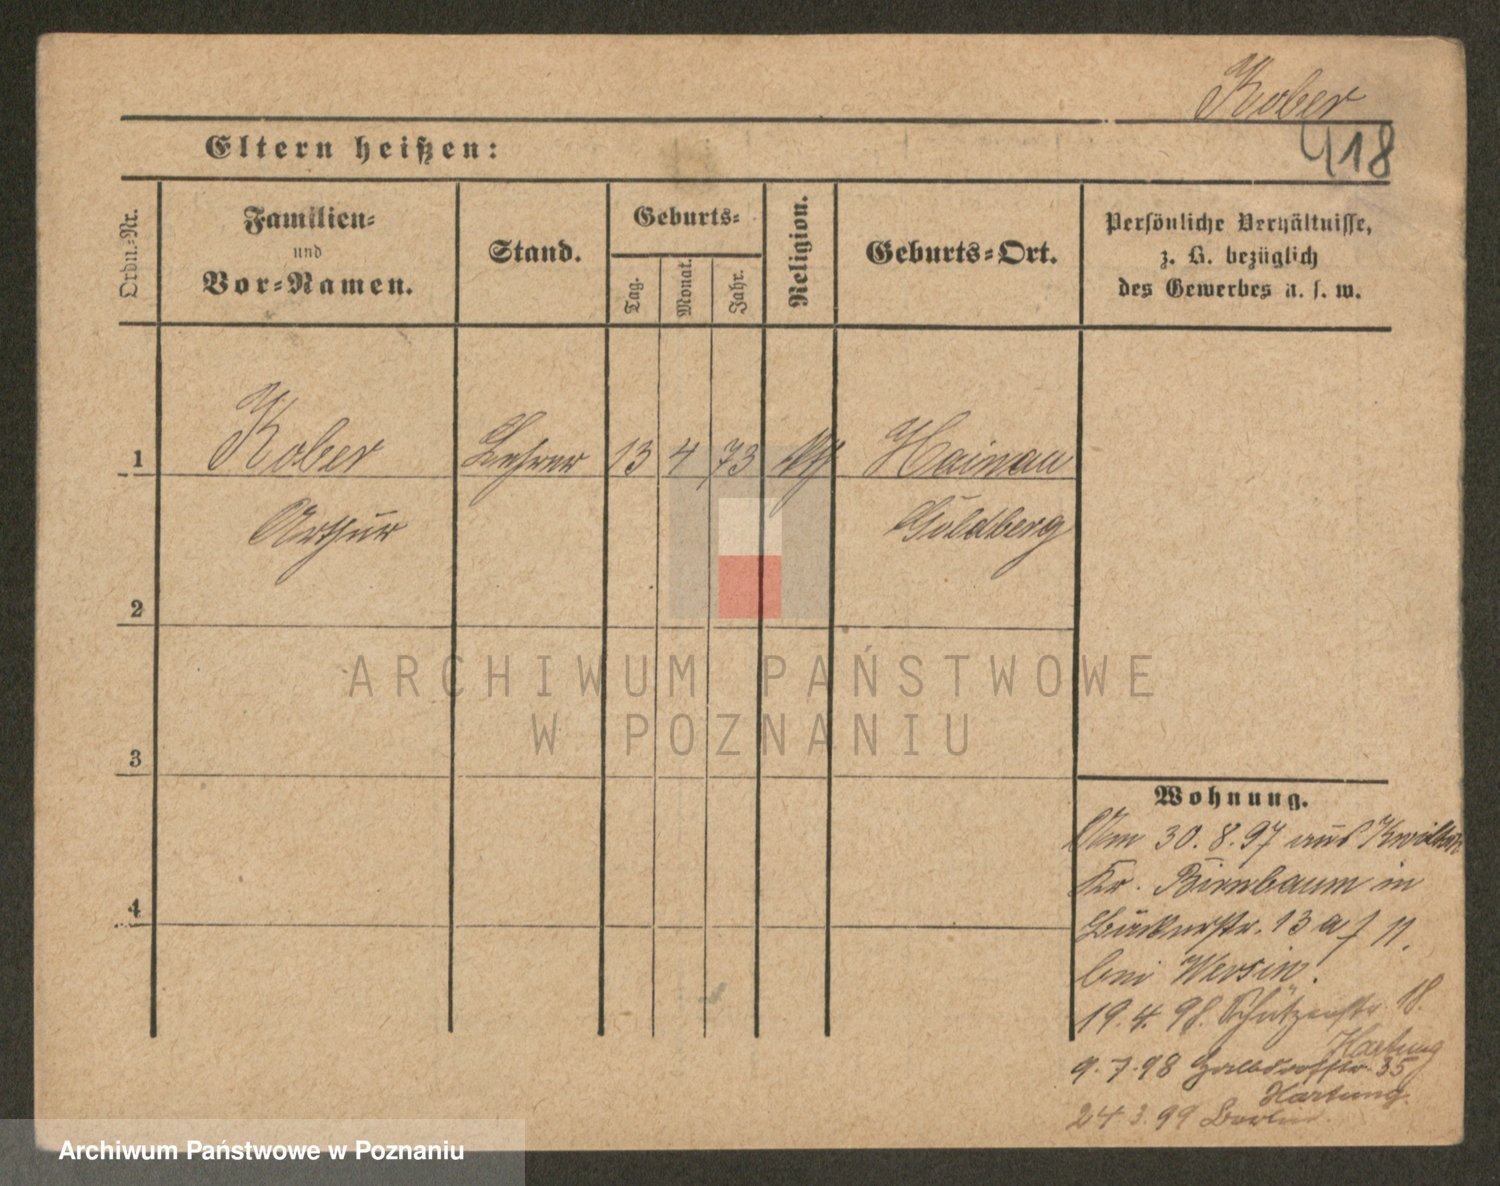 Kober
418
Eltern heißen:
Ordn.-Nr.
Familien-
und
Vor-Namen.
Stand.
Geburts-
Tag.
Monat.
Jahr.
Religion.
Geburts-Ort.
Persönliche Verhältnisse,
z. B. bezüglich
des Gewerbes u. s. w.
1 Kober Lehrer 13 4 73 Hainau
Arthur Goldberg
2
3
4
Wohnung.
Am 30.8.97 aus
Kr. Birnbaum in
13 a
bei Wersin.
19.4.98. Schützenstr. 18.
Hartung
9.7.98 35
Hartung.
24.3.99 Berlin.
ARCHIWUM PAŃSTWOWE
W POZNANIU
Archiwum Państwowe w Poznaniu